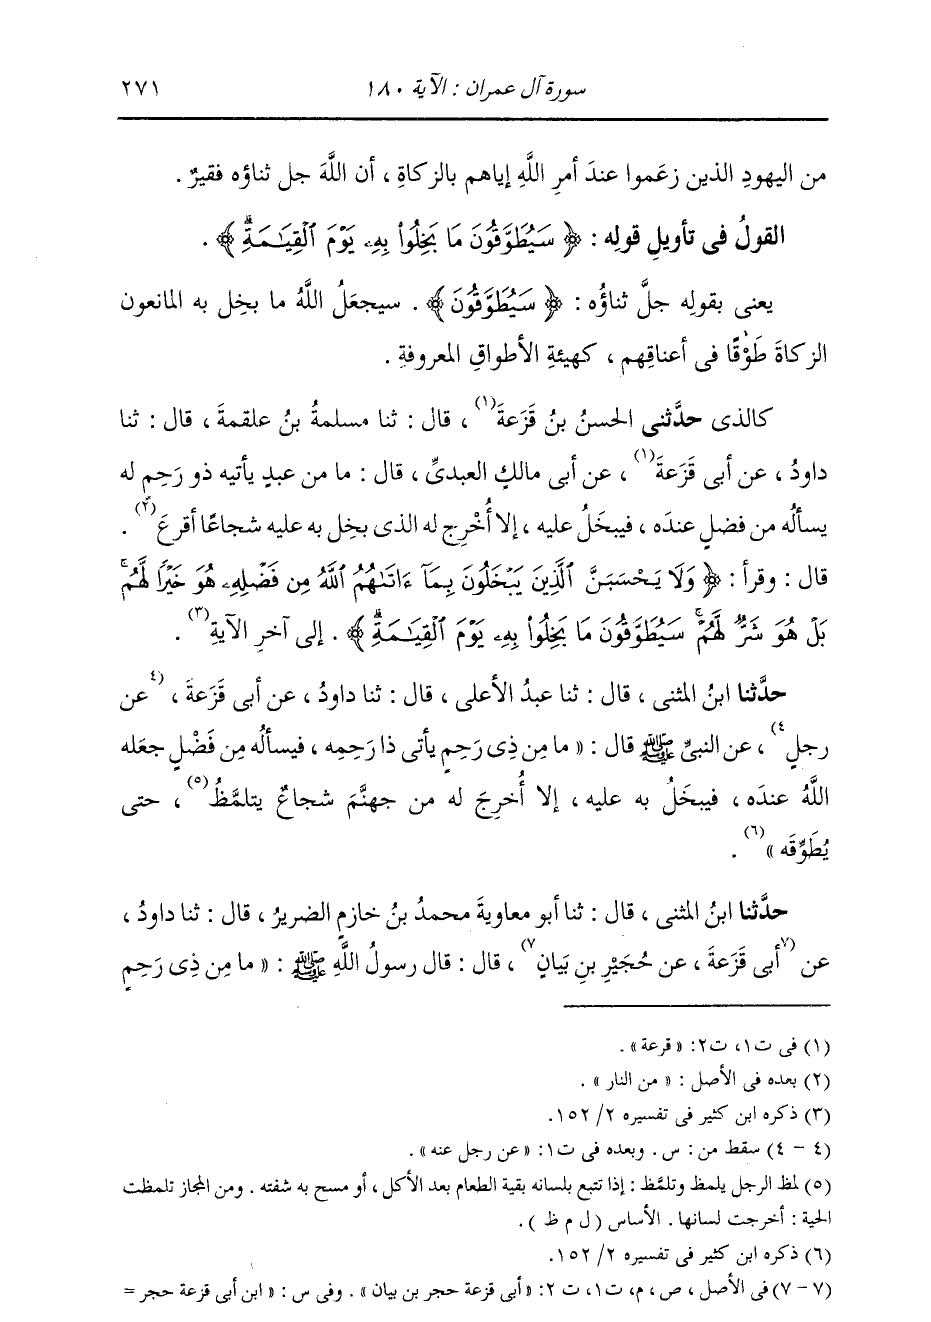 سورة آل عمران : الآية ١٨٠
٢٧١
من اليهودِ الذين زعَموا عندَ أمرِ اللَّهِ إياهم بالزكاةِ ، أن اللَّهَ جل ثناؤه فقيرٌ .
القولُ فى تأويلِ قولِه : ﴿ سَيُطَوَّقُونَ مَا بَخِلُوا۟ بِهِۦ يَوْمَ ٱلْقِيَٰمَةِۗ ﴾ .
يعنى بقولِه جلَّ ثناؤُه : ﴿ سَيُطَوَّقُونَ ﴾ . سيجعَلُ اللَّهُ ما بخِل به المانعون
الزكاةَ طَوْقًا فى أعناقِهم ، كهيئةِ الأطواقِ المعروفةِ .
كالذى حدَّثنى الحسنُ بنُ قَزَعةَ(١) ، قال : ثنا مسلمةُ بنُ علقمةَ ، قال : ثنا
داودُ ، عن أبى قَزَعةَ(١) ، عن أبى مالكٍ العبدىِّ ، قال : ما من عبدٍ يأتيه ذو رَحِمٍ له
يسألُه من فضلٍ عندَه ، فيبخَلُ عليه ، إلا أُخْرِج له الذى بخِل به عليه شجاعًا أقرعَ(٢) .
قال : وقرأ : ﴿ وَلَا يَحْسَبَنَّ ٱلَّذِينَ يَبْخَلُونَ بِمَآ ءَاتَىٰهُمُ ٱللَّهُ مِن فَضْلِهِۦ هُوَ خَيْرًا لَّهُمۖ
بَلْ هُوَ شَرٌّ لَّهُمْۖ سَيُطَوَّقُونَ مَا بَخِلُوا۟ بِهِۦ يَوْمَ ٱلْقِيَٰمَةِۗ ﴾ . إلى آخرِ الآيةِ(٣) .
حدَّثنا ابنُ المثنى ، قال : ثنا عبدُ الأعلى ، قال : ثنا داودُ ، عن أبى قَزَعةَ ، (٤عن
رجلٍ٤) ، عن النبىِّ ﷺ قال : « ما مِن ذِى رَحِمٍ يأتى ذا رَحِمِه ، فيسألُه مِن فَضْلٍ جعَله
اللَّهُ عندَه ، فيبخَلُ به عليه ، إلا أُخرِجَ له من جهنَّمَ شجاعٌ يتلمَّظُ(٥) ، حتى
يُطَوِّقَه »(٦) .
حدَّثنا ابنُ المثنى ، قال : ثنا أبو معاويةَ محمدُ بنُ خازمٍ الضريرُ ، قال : ثنا داودُ ،
عن (٧أبى قَزَعةَ ، عن حُجَيْرِ بنِ بَيَانٍ٧) ، قال : قال رسولُ اللَّهِ ﷺ : « ما مِن ذِى رَحِمٍ
(١) فى ت١، ت٢: « قرعة » .
(٢) بعده فى الأصل : « من النار » .
(٣) ذكره ابن كثير فى تفسيره ٢/ ١٥٢.
(٤ - ٤) سقط من : س . وبعده فى ت١: « عن رجل عنه » .
(٥) لمظ الرجل يلمظ وتلمَّظ : إذا تتبع بلسانه بقية الطعام بعد الأكل ، أو مسح به شفته . ومن المجاز تلمظت
الحية : أخرجت لسانها. الأساس ( ل م ظ ).
(٦) ذكره ابن كثير فى تفسيره ٢/ ١٥٢.
(٧ - ٧) فى الأصل ، ص ، م، ت١، ت ٢: « أبى قزعة حجر بن بيان » . وفى س : « ابن أبى قزعة حجر =